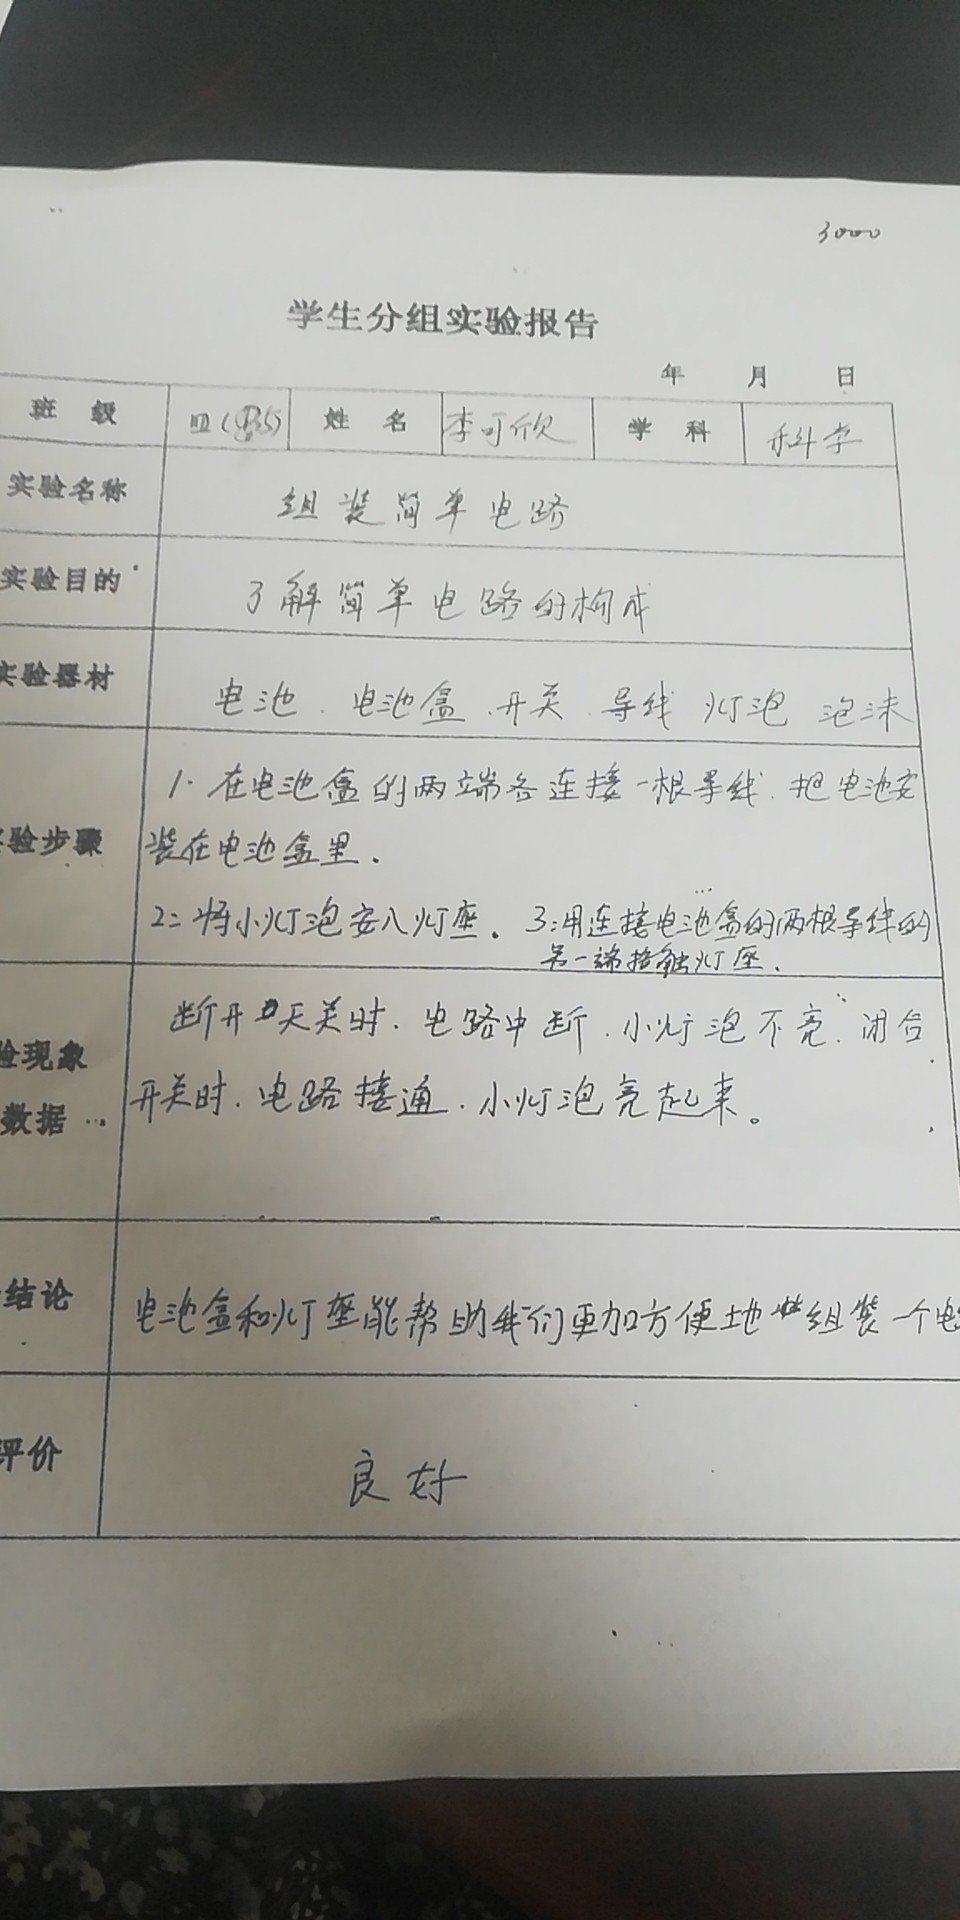 3000
学生分组实验报告
年 月 日
班 级 四( 5) 姓 名 李可欣 学 科 科学
实验名称 组装简单电路
实验目的 了解简单电路的构成
实验器材 电池、电池盒、开关、导线 灯泡 泡沫
验步骤 1. 在电池盒的两端各连接一根导线.把电池安
装在电池盒里.
2:将小灯泡安入灯座. 3:用连接电池盒的两根导线的
另一端接触灯座.
断开 关时.电路中断.小灯泡不亮.闭合
验现象
开关时.电路接通.小灯泡亮起来。
数据
结论 电池盒和灯座能帮助我们更加方便地组装一个电
评价 良好